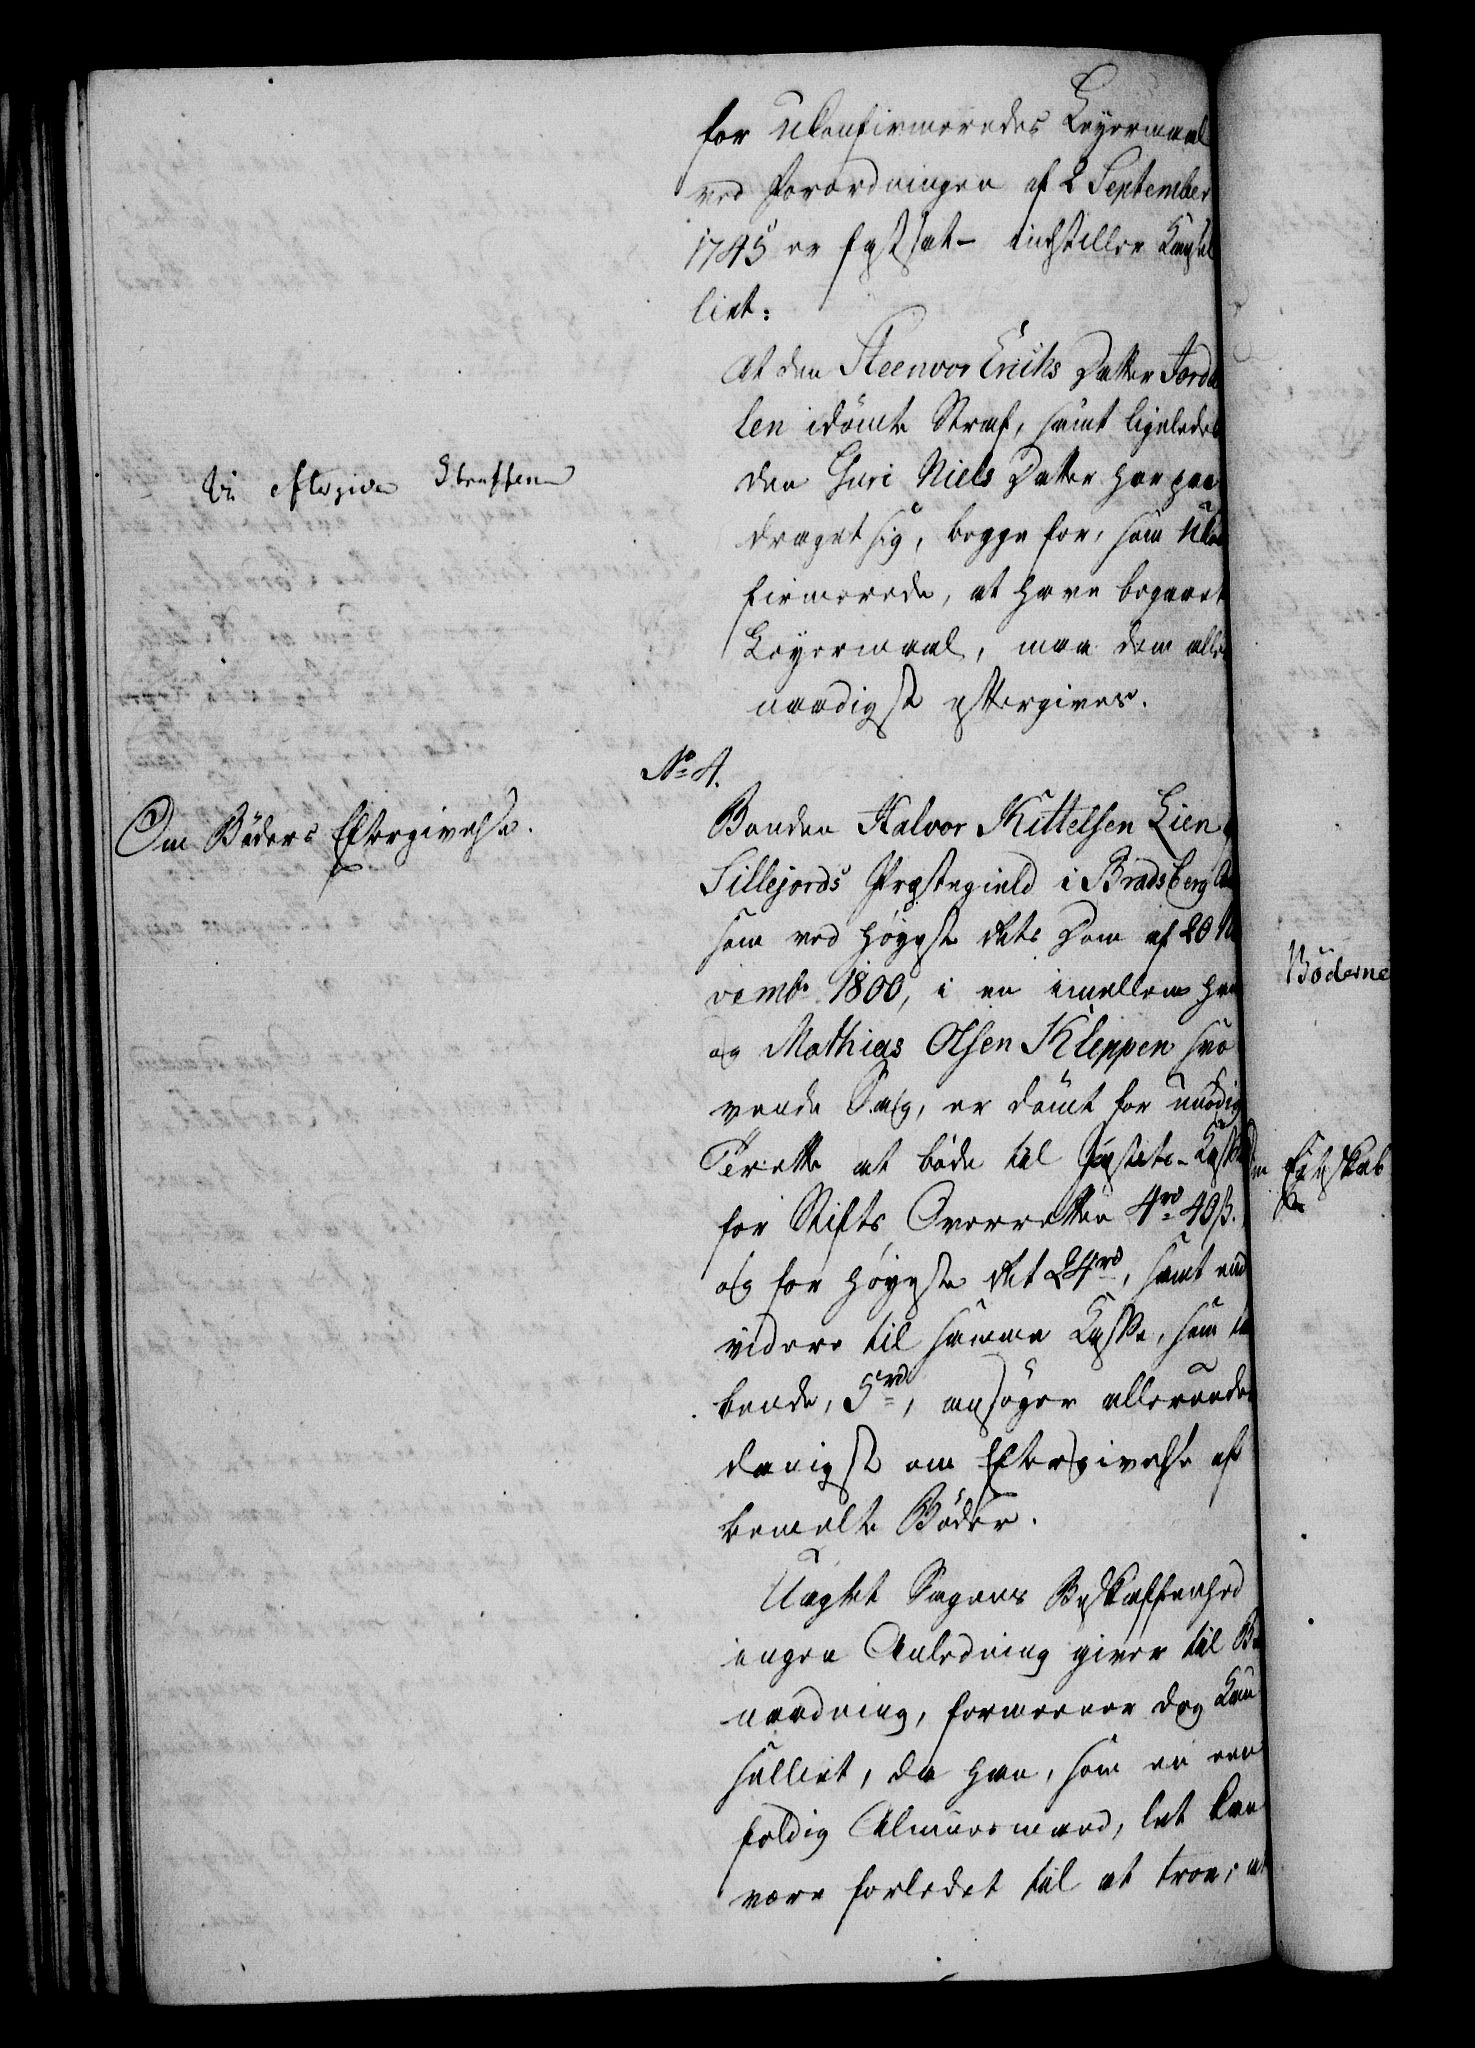 for Ukonfirmeredes Leyermaal
ved Forordningen af 2 September
1745 er fastsat – indstiller Kancel
liet:
At den Steenvor Eriks Datter Jorda
len idömte Straf, samt ligeledes
den Guri Niels Datter har paa
draget sig, begge for, som Ukon
firmerede, at have begaaet
Leyermaal, maa dem aller
naadigst eftergives.
Vi eftergive Straffen
No 4.
Om Böders Eftergivelse.
Bonden Halvor Kittelsen Lien
Sillejords Præstegield i Bradsberg
som ved Høyeste Rets Dom af 20 No
vembr 1800, i en imellem ham
og Mathias Olsen Kleppen svæ
vende Sag, er dömt for unödig
Trette at böde til Justits-Kassen
for Stifts Overretten 4 rd 40 ß.
og for Høyeste Ret 24 rd, samt end
videre til samme Kasse, som ta
bende, 5 rd, ansöger allerunder
danigst om Eftergivelse af
bemelte Böder.
Uagtet Sagens Beskaffenhed
ingen Anledning giver til Be
naadning, formeener dog Kan
celliet, da han, som en een
foldig Almuesmand, let kan
være forledet til at troe, at
Böderne